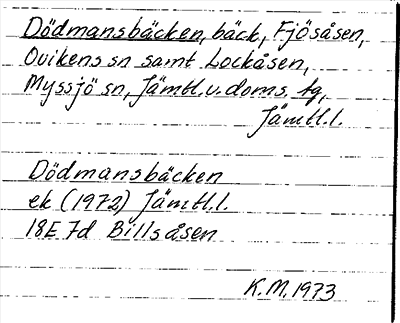 Dödmansbäcken, bäck, Fjösåsen,
Ovikens sn samt Lockåsen,
Myssjö sn, Jämtl.v.doms. tg,
Jämtl.l.
Dödmansbäcken
ek (1972) Jämtl.l.
18E 7d Billsåsen
K.M. 1973